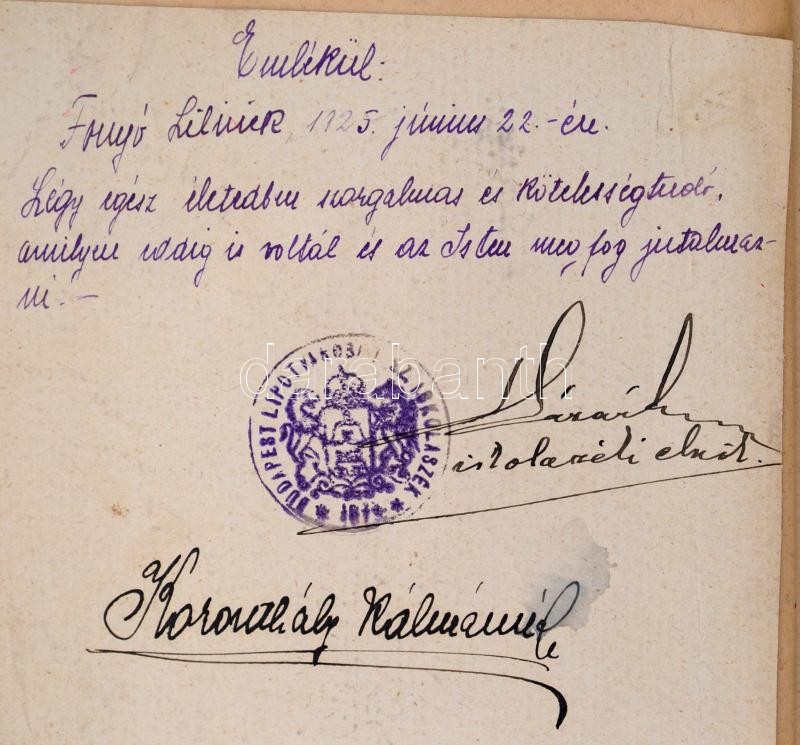 Emlékül.
Fonyó Lilinek, 1925. június 22.-én.
Légy egész életedben szorgalmas és kötelességtudó,
amilyen eddig is voltál és az Isten meg fog jutalmaz-
ni! –
darabanth
BUDAPEST LIPÓTVÁROSI ISKOLASZÉK
iskolaszéki elnök.
Koronthály Kálmánné